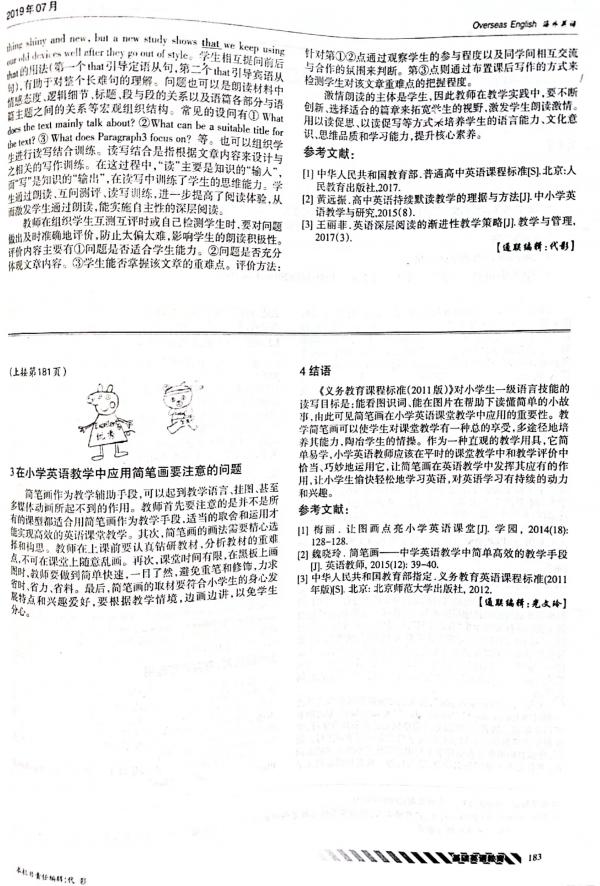 2019年07月
Overseas English 海外英语
thing shiny and new, but a new study shows that we keep using
our old devices well after they go out of style。学生相互提问前后
that的用法(第一个that引导定语从句,第二个that引导宾语从
句),有助于对整个长难句的理解。问题也可以是朗读材料中
情感态度、逻辑细节、标题、段与段的关系以及语篇各部分与语
篇主题之间的关系等宏观组织结构。常见的设问有① What
does the text mainly talk about? ②What can be a suitable title for
the text? ③ What does Paragraph3 focus on? 等。也可以组织学
生进行读写结合训练。读写结合是指根据文章内容来设计与
之相关的写作训练。在这过程中,“读”主要是知识的“输入”,
而“写”是知识的“输出”,在读写中训练了学生的思维能力。学
生通过朗读、互问测评、读写训练,进一步提高了阅读体验,从
而激发学生通过朗读,能实施自主性的深层阅读。
教师在组织学生互测互评时或自己检测学生时,要对问题
做出及时准确地评价,防止太偏太难,影响学生的朗读积极性。
评价内容主要有①问题是否适合学生能力。②问题是否充分
体现文章内容。③学生能否掌握该文章的重难点。评价方法:
针对第①②点通过观察学生的参与程度以及同学间相互交流
与合作的氛围来判断。第③点则通过布置课后写作的方式来
检测学生对该文章重难点的把握程度。
激情朗读的主体是学生,因此教师在教学实践中,要不断
创新,选择适合的篇章来拓宽学生的视野,激发学生朗读激情。
用以读促思、以读促写等方式来培养学生的语言能力、文化意
识、思维品质和学习能力,提升核心素养。
参考文献:
[1] 中华人民共和国教育部.普通高中英语课程标准[S].北京:人
民教育出版社,2017.
[2] 黄远振.高中英语持续默读教学的理据与方法[J].中小学英
语教学与研究,2015(8).
[3] 王丽菲.英语深层阅读的渐进性教学策略[J].教学与管理,
2017(3).
【通联编辑:代影】
(上接第181页)
3 在小学英语教学中应用简笔画要注意的问题
简笔画作为教学辅助手段,可以起到教学语言、挂图、甚至
多媒体动画所起不到的作用。教师首先要注意的是并不是所
有的课型都适合用简笔画作为教学手段,适当的取舍和运用才
能实现高效的英语课堂教学。其次,简笔画的画法需要精心选
择和构思。教师在上课前要认真钻研教材,分析教材的重难
点,不可在课堂上随意乱画。再次,课堂时间有限,在黑板上画
图时,教师要做到简单快速,一目了然,避免重笔和修饰,力求
省时、省力、省料。最后,简笔画的取材要符合小学生的身心发
展特点和兴趣爱好,要根据教学情境,边画边讲,以免学生
分心。
4 结语
《义务教育课程标准(2011版)》对小学生一级语言技能的
读写目标是:能看图识词、能在图片在帮助下读懂简单的小故
事,由此可见简笔画在小学英语课堂教学中应用的重要性。教
学简笔画可以使学生对课堂教学有一种总的享受,多途径地培
养其能力、陶冶学生的情操。作为一种直观的教学用具,它简
单易学,小学英语教师应该在平时的课堂教学中和教学评价中
恰当、巧妙地运用它,让简笔画在英语教学中发挥其应有的作
用,让小学生愉快轻松地学习英语,对英语学习有持续的动力
和兴趣。
参考文献:
[1] 梅丽. 让图画点亮小学英语课堂[J]. 学园, 2014(18):
128-128.
[2] 魏晓玲. 简笔画——中学英语教学中简单高效的教学手段
[J]. 英语教师, 2015(12): 39-40.
[3] 中华人民共和国教育部指定. 义务教育英语课程标准(2011
年版)[S]. 北京: 北京师范大学出版社, 2012.
【通联编辑:光文玲】
本栏目责任编辑:代 影
基础英语教育
183